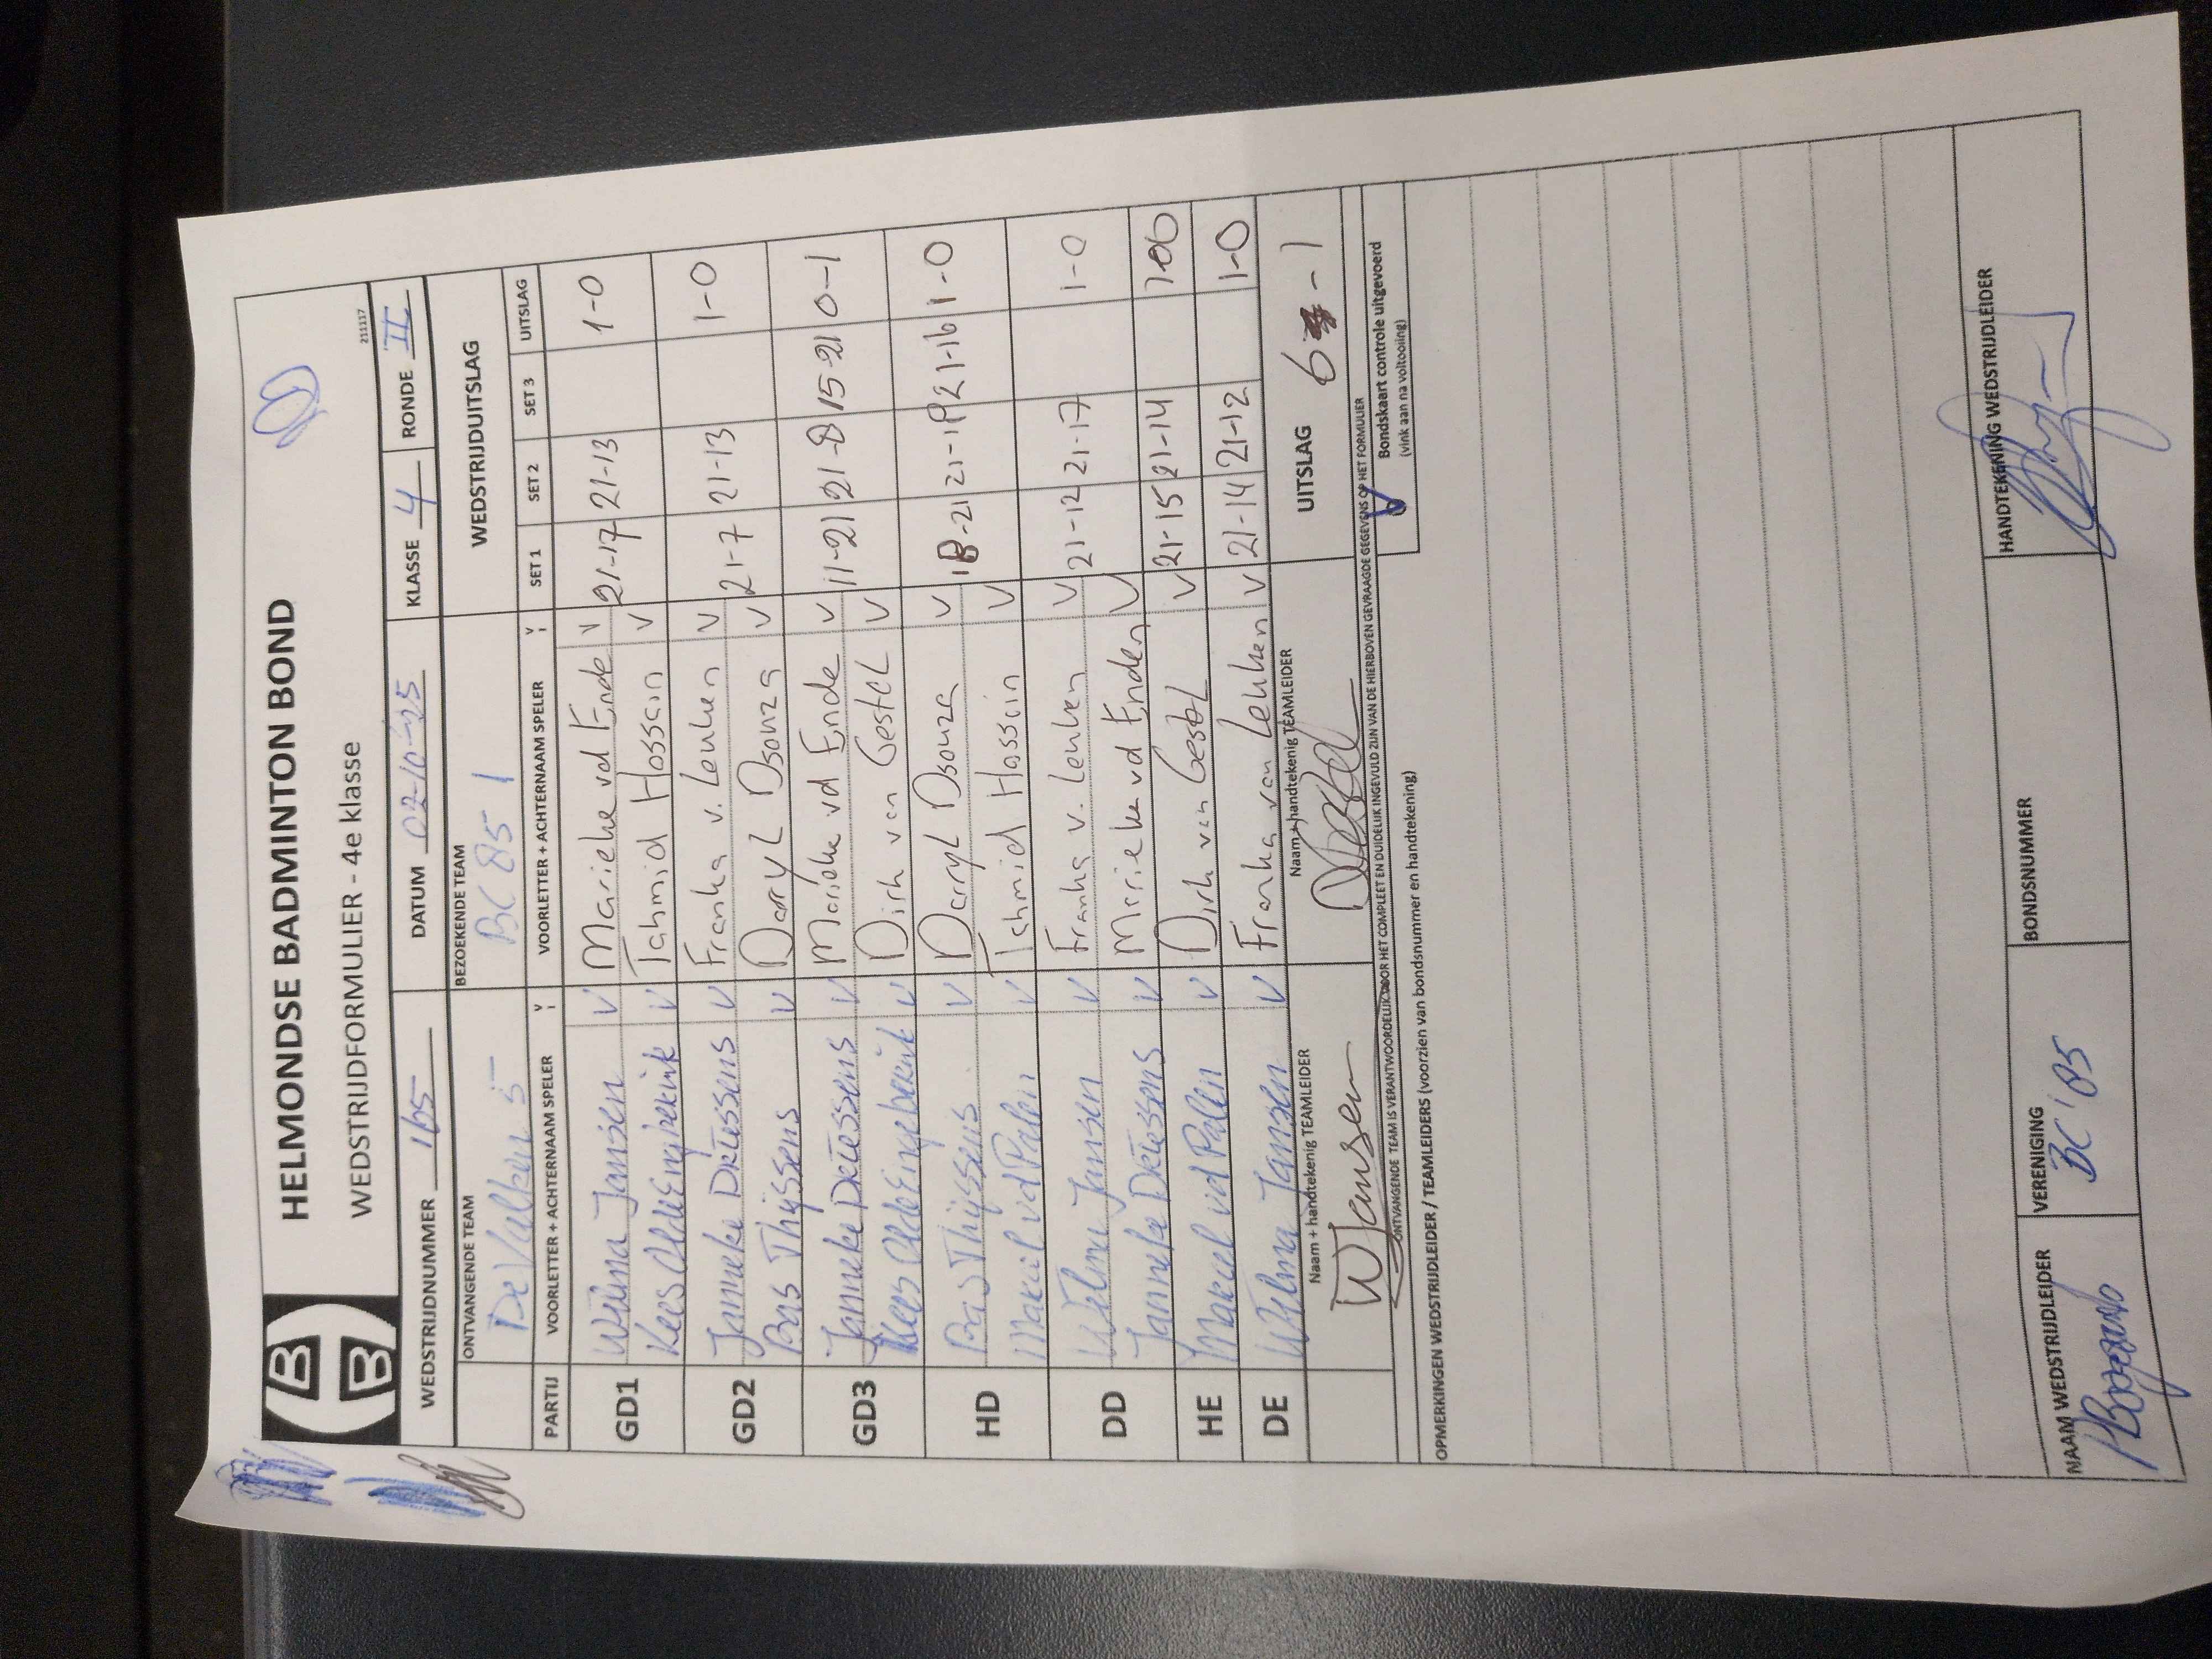 HELMONDSE BADMINTON BOND
WEDSTRIJDFORMULIER - 4e klasse
211117
WEDSTRIJDNUMMER 165 DATUM 02-10-25 KLASSE 4 RONDE II
ONTVANGENDE TEAM BEZOEKENDE TEAM WEDSTRIJDUITSLAG
De Valken 5 BC 85 1
PARTIJ VOORLETTER + ACHTERNAAM SPELER V VOORLETTER + ACHTERNAAM SPELER V SET 1 SET 2 SET 3 UITSLAG
GD1 Wilma Jansen V Marieke vd Ende V 21-17 21-13 1-0
Kees Olde Engberink V Tahmid Hossain V
GD2 Janneke Driessens V Franka v. Leuken V 21-7 21-13 1-0
Bas Thijssens V Darryl Dsouza V
GD3 Janneke Driessens V Marieke vd Ende V 11-21 21-8 15-21 0-1
Kees Olde Engberink V Dirk van Gestel V
HD Bas Thijssens V Darryl Dsouza V 18-21 21-19 21-16 1-0
Marcel vd Palen V Tahmid Hossain V
DD Wilma Jansen V Franka v. Leuken V 21-12 21-17 1-0
Janneke Driessens V Marieke vd Enden V
HE Marcel vd Palen V Dirk van Gestel V 21-15 21-14 1-0
DE Wilma Jansen V Franka van Leuken V 21-14 21-12 1-0
Naam + handtekenig TEAMLEIDER Naam + handtekenig TEAMLEIDER UITSLAG 6 - 1
WJansen
ONTVANGENDE TEAM IS VERANTWOORDELIJK VOOR HET COMPLEET EN DUIDELIJK INGEVULD ZIJN VAN DE HIERBOVEN GEVRAAGDE GEGEVENS OP HET FORMULIER
V Bondskaart controle uitgevoerd
(vink aan na voltooiing)
OPMERKINGEN WEDSTRIJDLEIDER / TEAMLEIDERS (voorzien van bondsnummer en handtekening)
NAAM WEDSTRIJDLEIDER VERENIGING BONDSNUMMER HANDTEKENING WEDSTRIJDLEIDER
BC '85